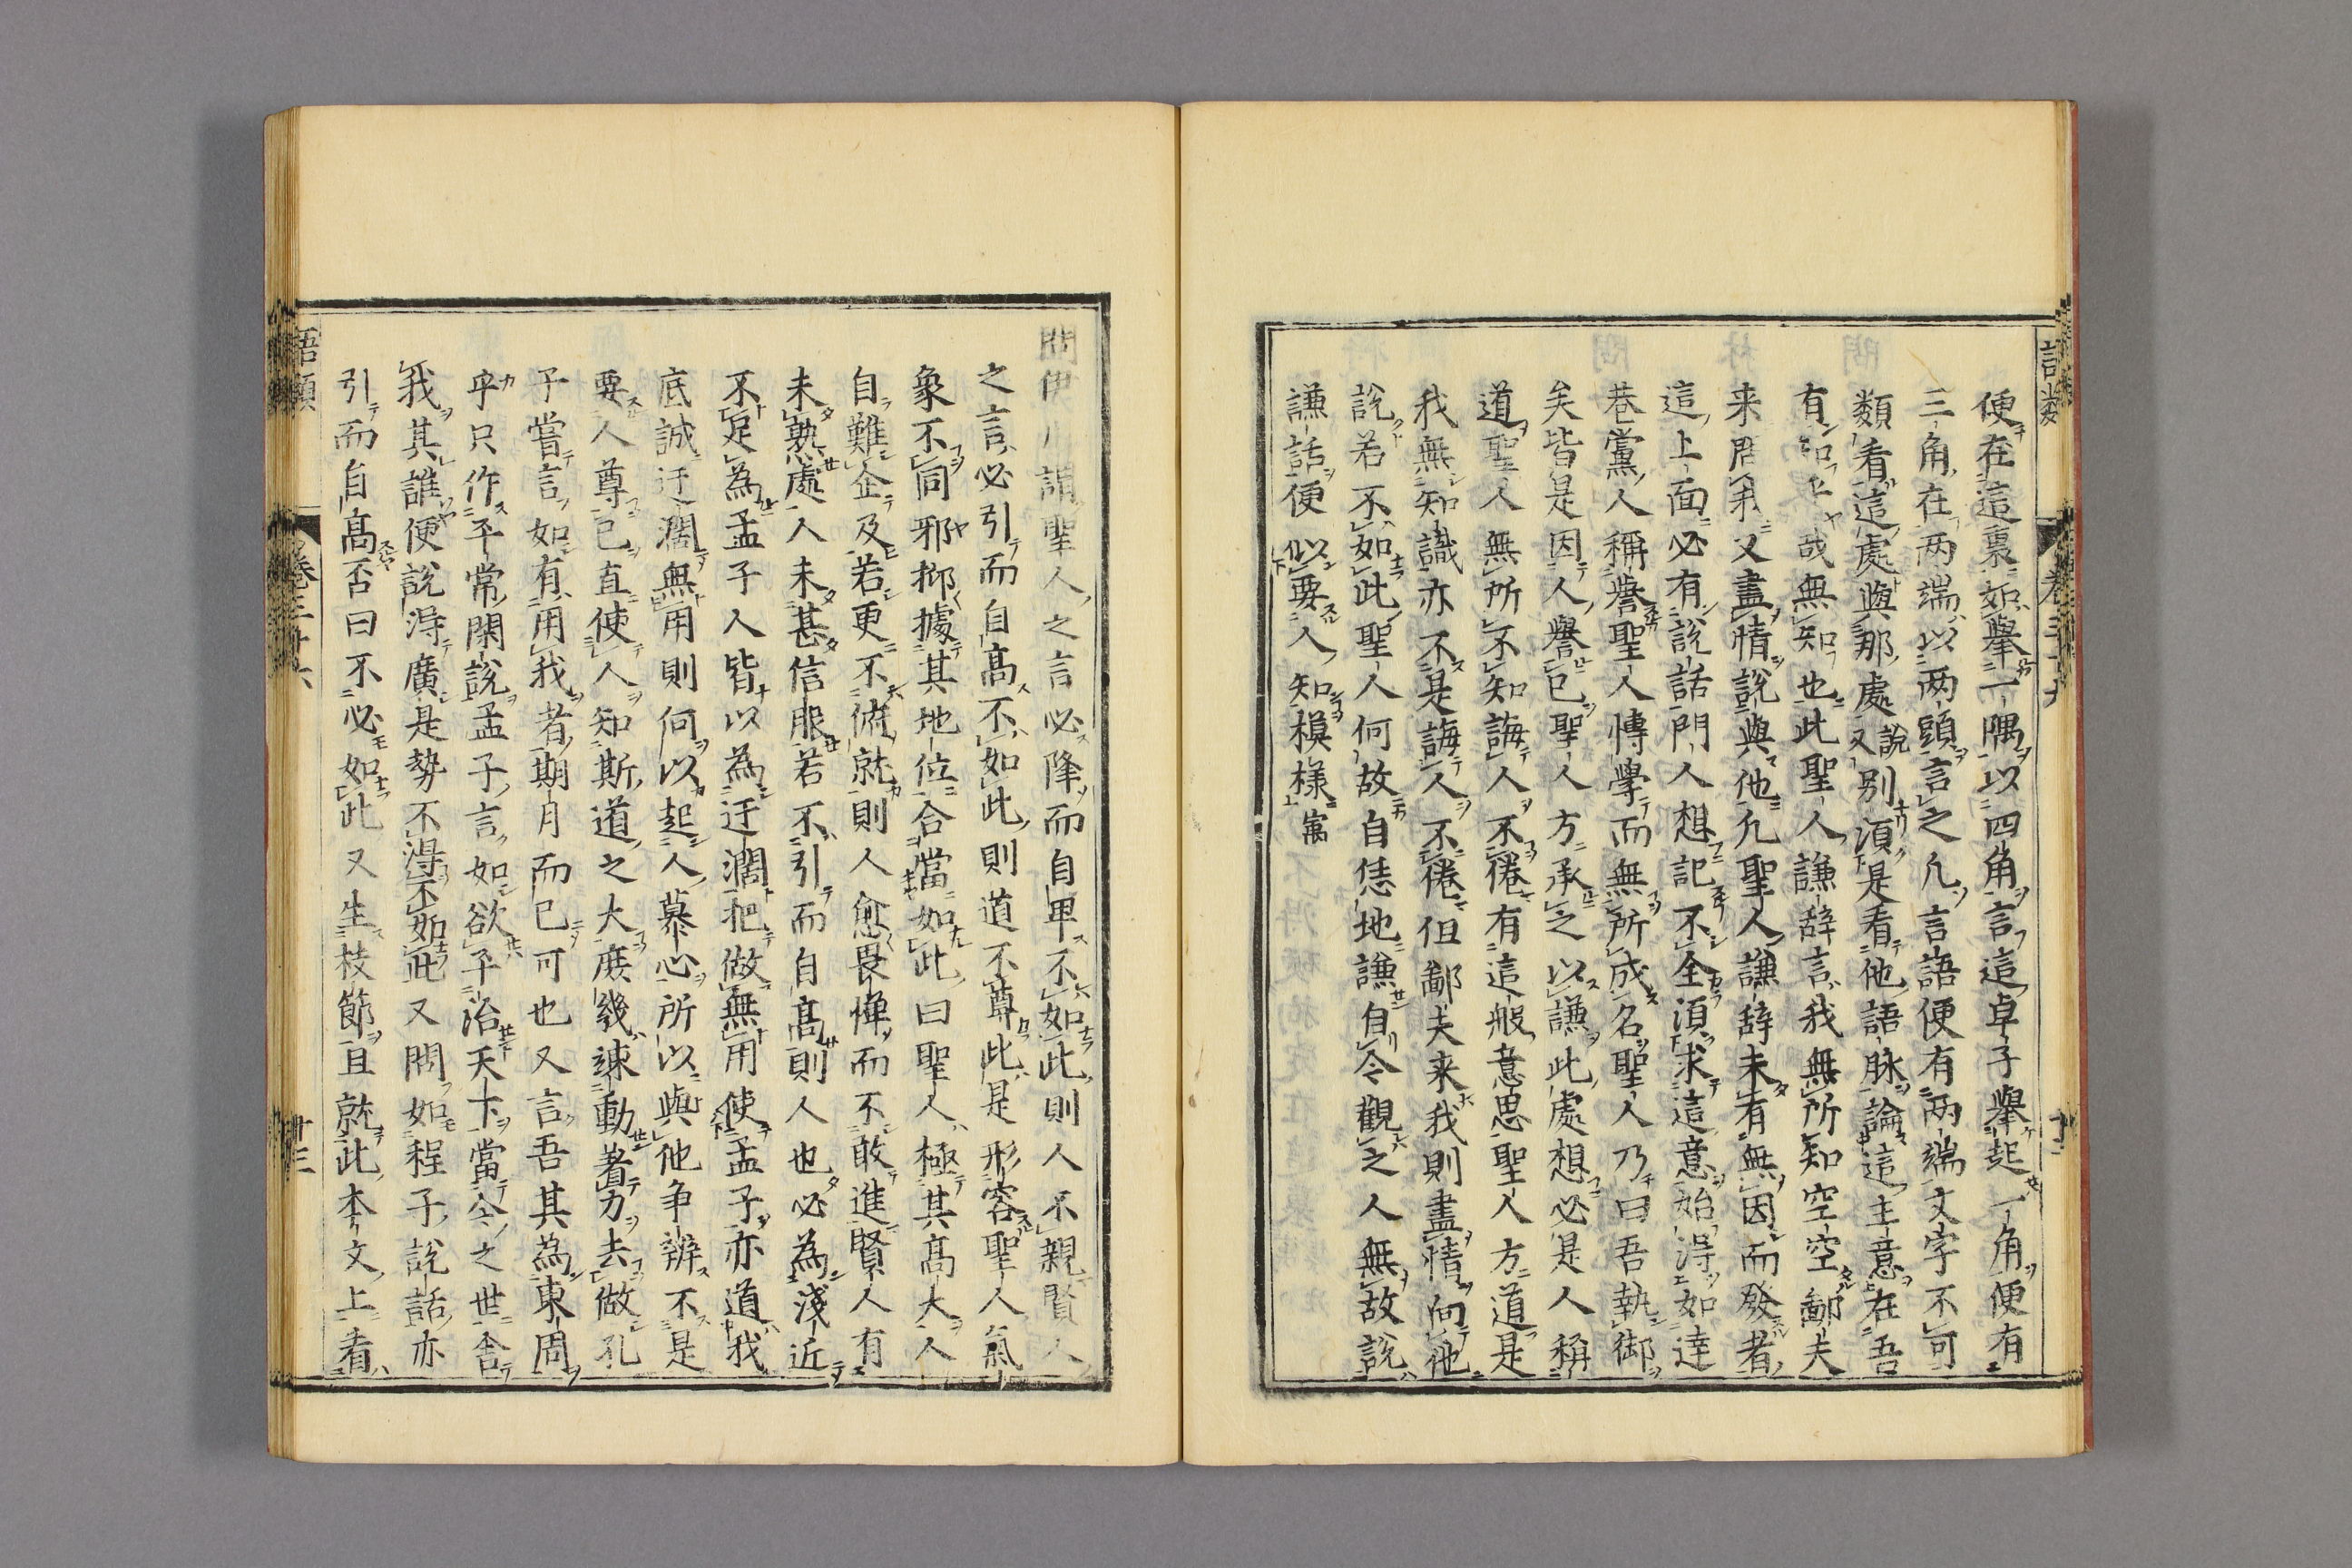 便在這裏如舉一隅以四角言這卓子舉起一角便有
三角在兩端以兩頭言之凢言語便有兩端文字不可
類看這處與那處說又別須是看他語脉論這主意在吾
有知乎哉無知也此聖人謙辞言我無所知空空鄙夫
来問我又盡情說與他凢聖人謙辞未有無因而發者
這上面必有說話門人想記不全須求這意始得如達
巷黨人稱譽聖人愽學而無所成名聖人乃曰吾執御
矣皆是因人譽已聖人方承之以謙此處想必是人稱
道聖人無所不知誨人不倦有這般意思聖人方道是
我無知識亦不是誨人不倦但鄙夫来我則盡情向他
說若不如此聖人何故自恁地謙自今觀之人無故說
謙話便似要人知模様㝢
問伊川謂聖人之言必降而自卑不如此則人不親賢人
之言必引而自髙不如此則道不尊此是形容聖人氣
象不同邪抑據其地位合當如此曰聖人極其髙大人
自難企及若更不俯就則人愈畏憚而不敢進賢人有
未熟處人未甚信服若不引而自髙則人也必為淺近
不足為孟子人皆以為迂濶把做無用使孟子亦道我
底誠迂濶無用則何以起人慕心所以與他争辨不是
要人尊已直使人知斯道之大庶幾竦動著力去做孔
子嘗言如有用我者期月而已可也又言吾其為東周
乎只作平常閑說孟子言如欲平治天下當今之世舎
我其誰便說得廣是勢不得不如此又問如程子說話亦
引而自髙否曰不必如此又生枝節且就此本文上看
語類
卷三十六
十三